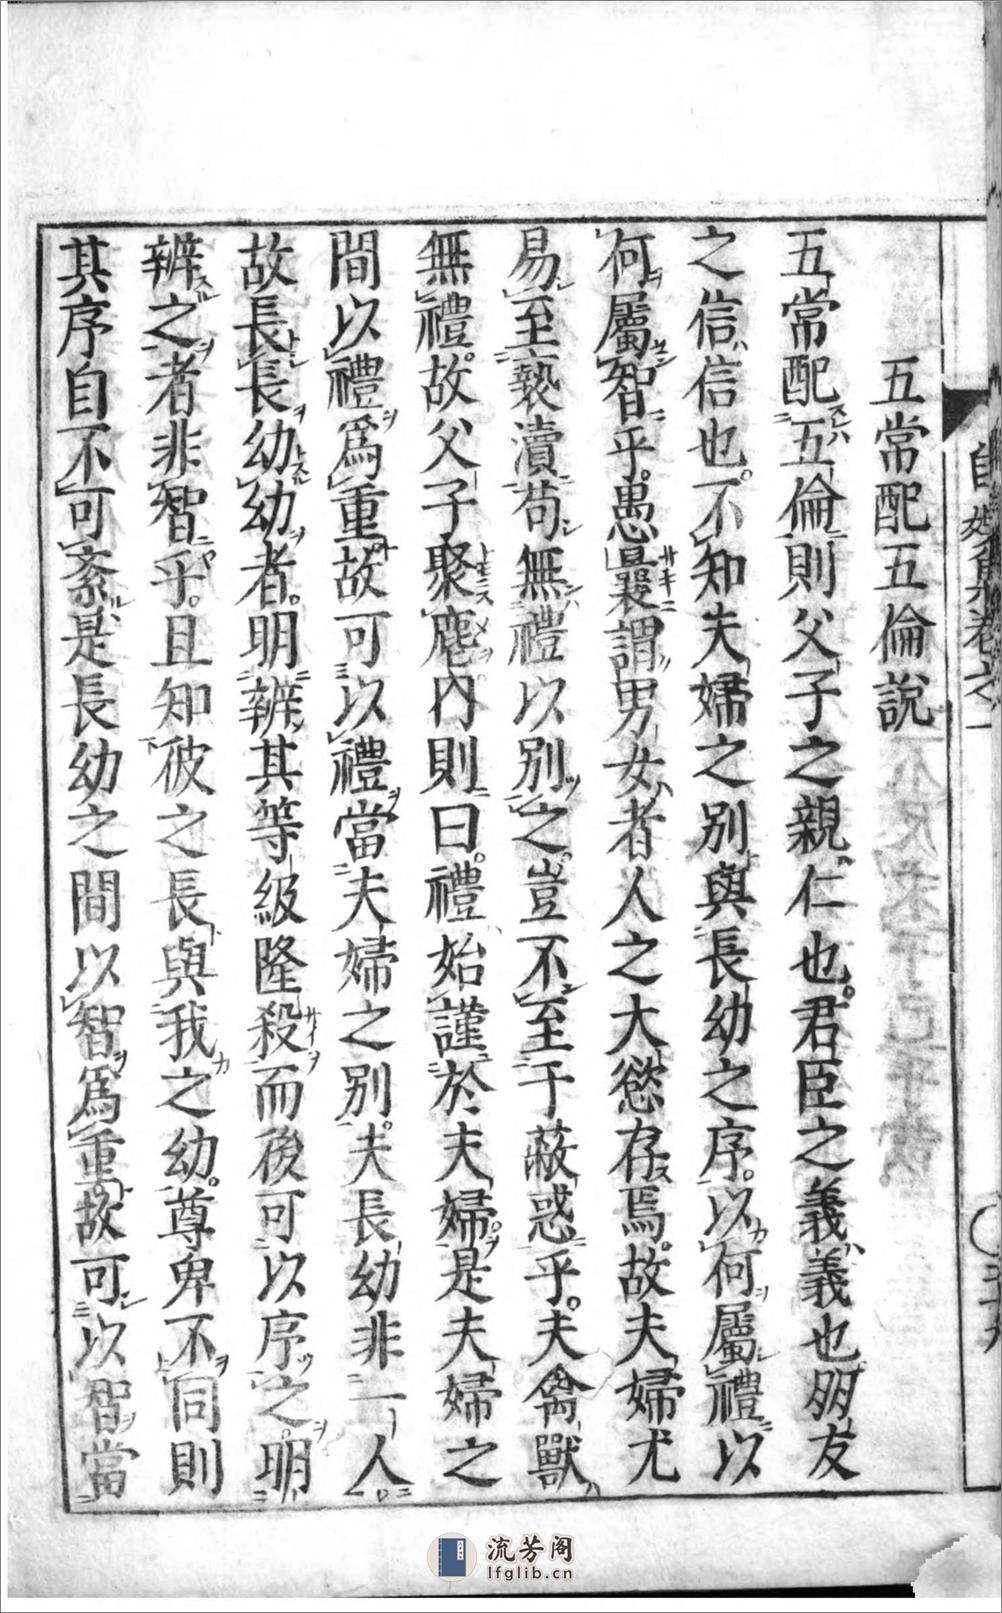 五常配五倫說
五常配五倫則父子之親仁也君臣之義義也朋友
之信信也不知夫婦之別與長幼之序以何屬禮以
何屬智乎愚曩謂男女者人之大慾存焉故夫婦尤
易至褻瀆苟無禮以別之豈不至于蔽惑乎夫禽獸
無禮故父子聚麀內則曰禮始謹於夫婦是夫婦之
間以禮爲重故可以禮當夫婦之別夫長幼非一人
故長長幼幼者明辨其等級隆殺而後可以序之明
辨之者非智乎且知彼之長與我之幼尊卑不同則
其序自不可紊是長幼之間以智爲重故可以智當
流芳阁
lfglib.cn